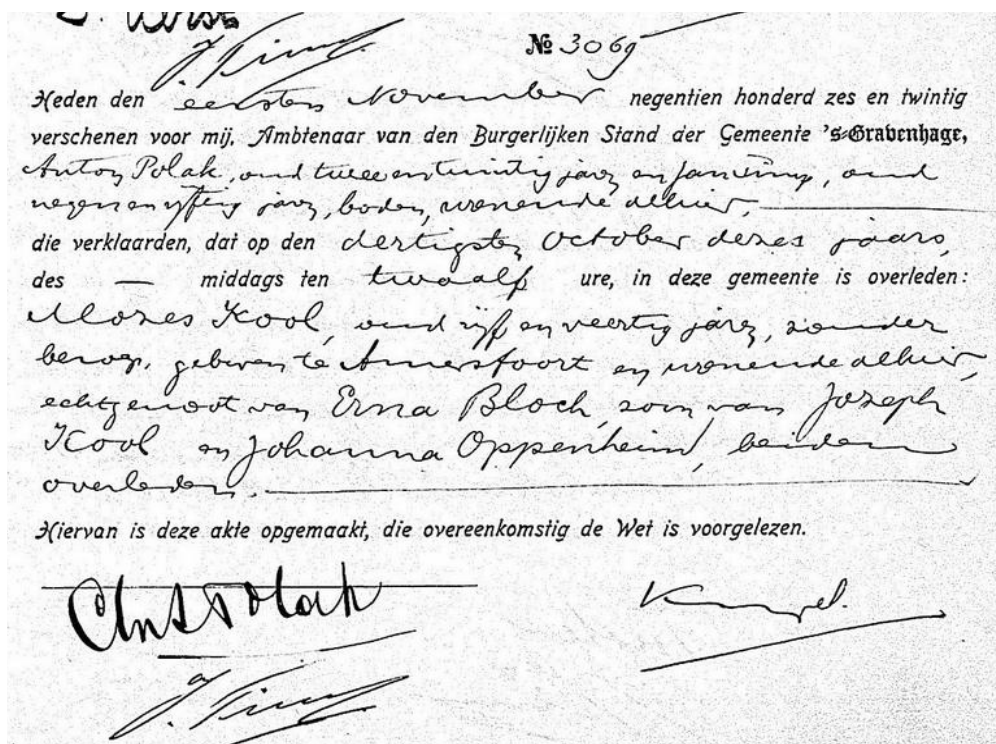 No 3069
Heden den eersten November negentien honderd zes en twintig
verschenen voor mij, Ambtenaar van den Burgerlijken Stand der Gemeente 's-Gravenhage,
Anton Polak, oud twee en twintig jaren en Jan, oud
negen en vijftig jaren, boden, wonende alhier,
die verklaarden, dat op den dertigsten October dezes jaars,
des — middags ten twaalf ure, in deze gemeente is overleden:
Mozes Kool, oud vijf en veertig jaren, zonder
beroep, geboren te Amersfoort en wonende alhier,
echtgenoot van Erna Bloch, zoon van Jozeph
Kool en Johanna Oppenheim, beiden
overleden.
Hiervan is deze akte opgemaakt, die overeenkomstig de Wet is voorgelezen.
Ant Polak